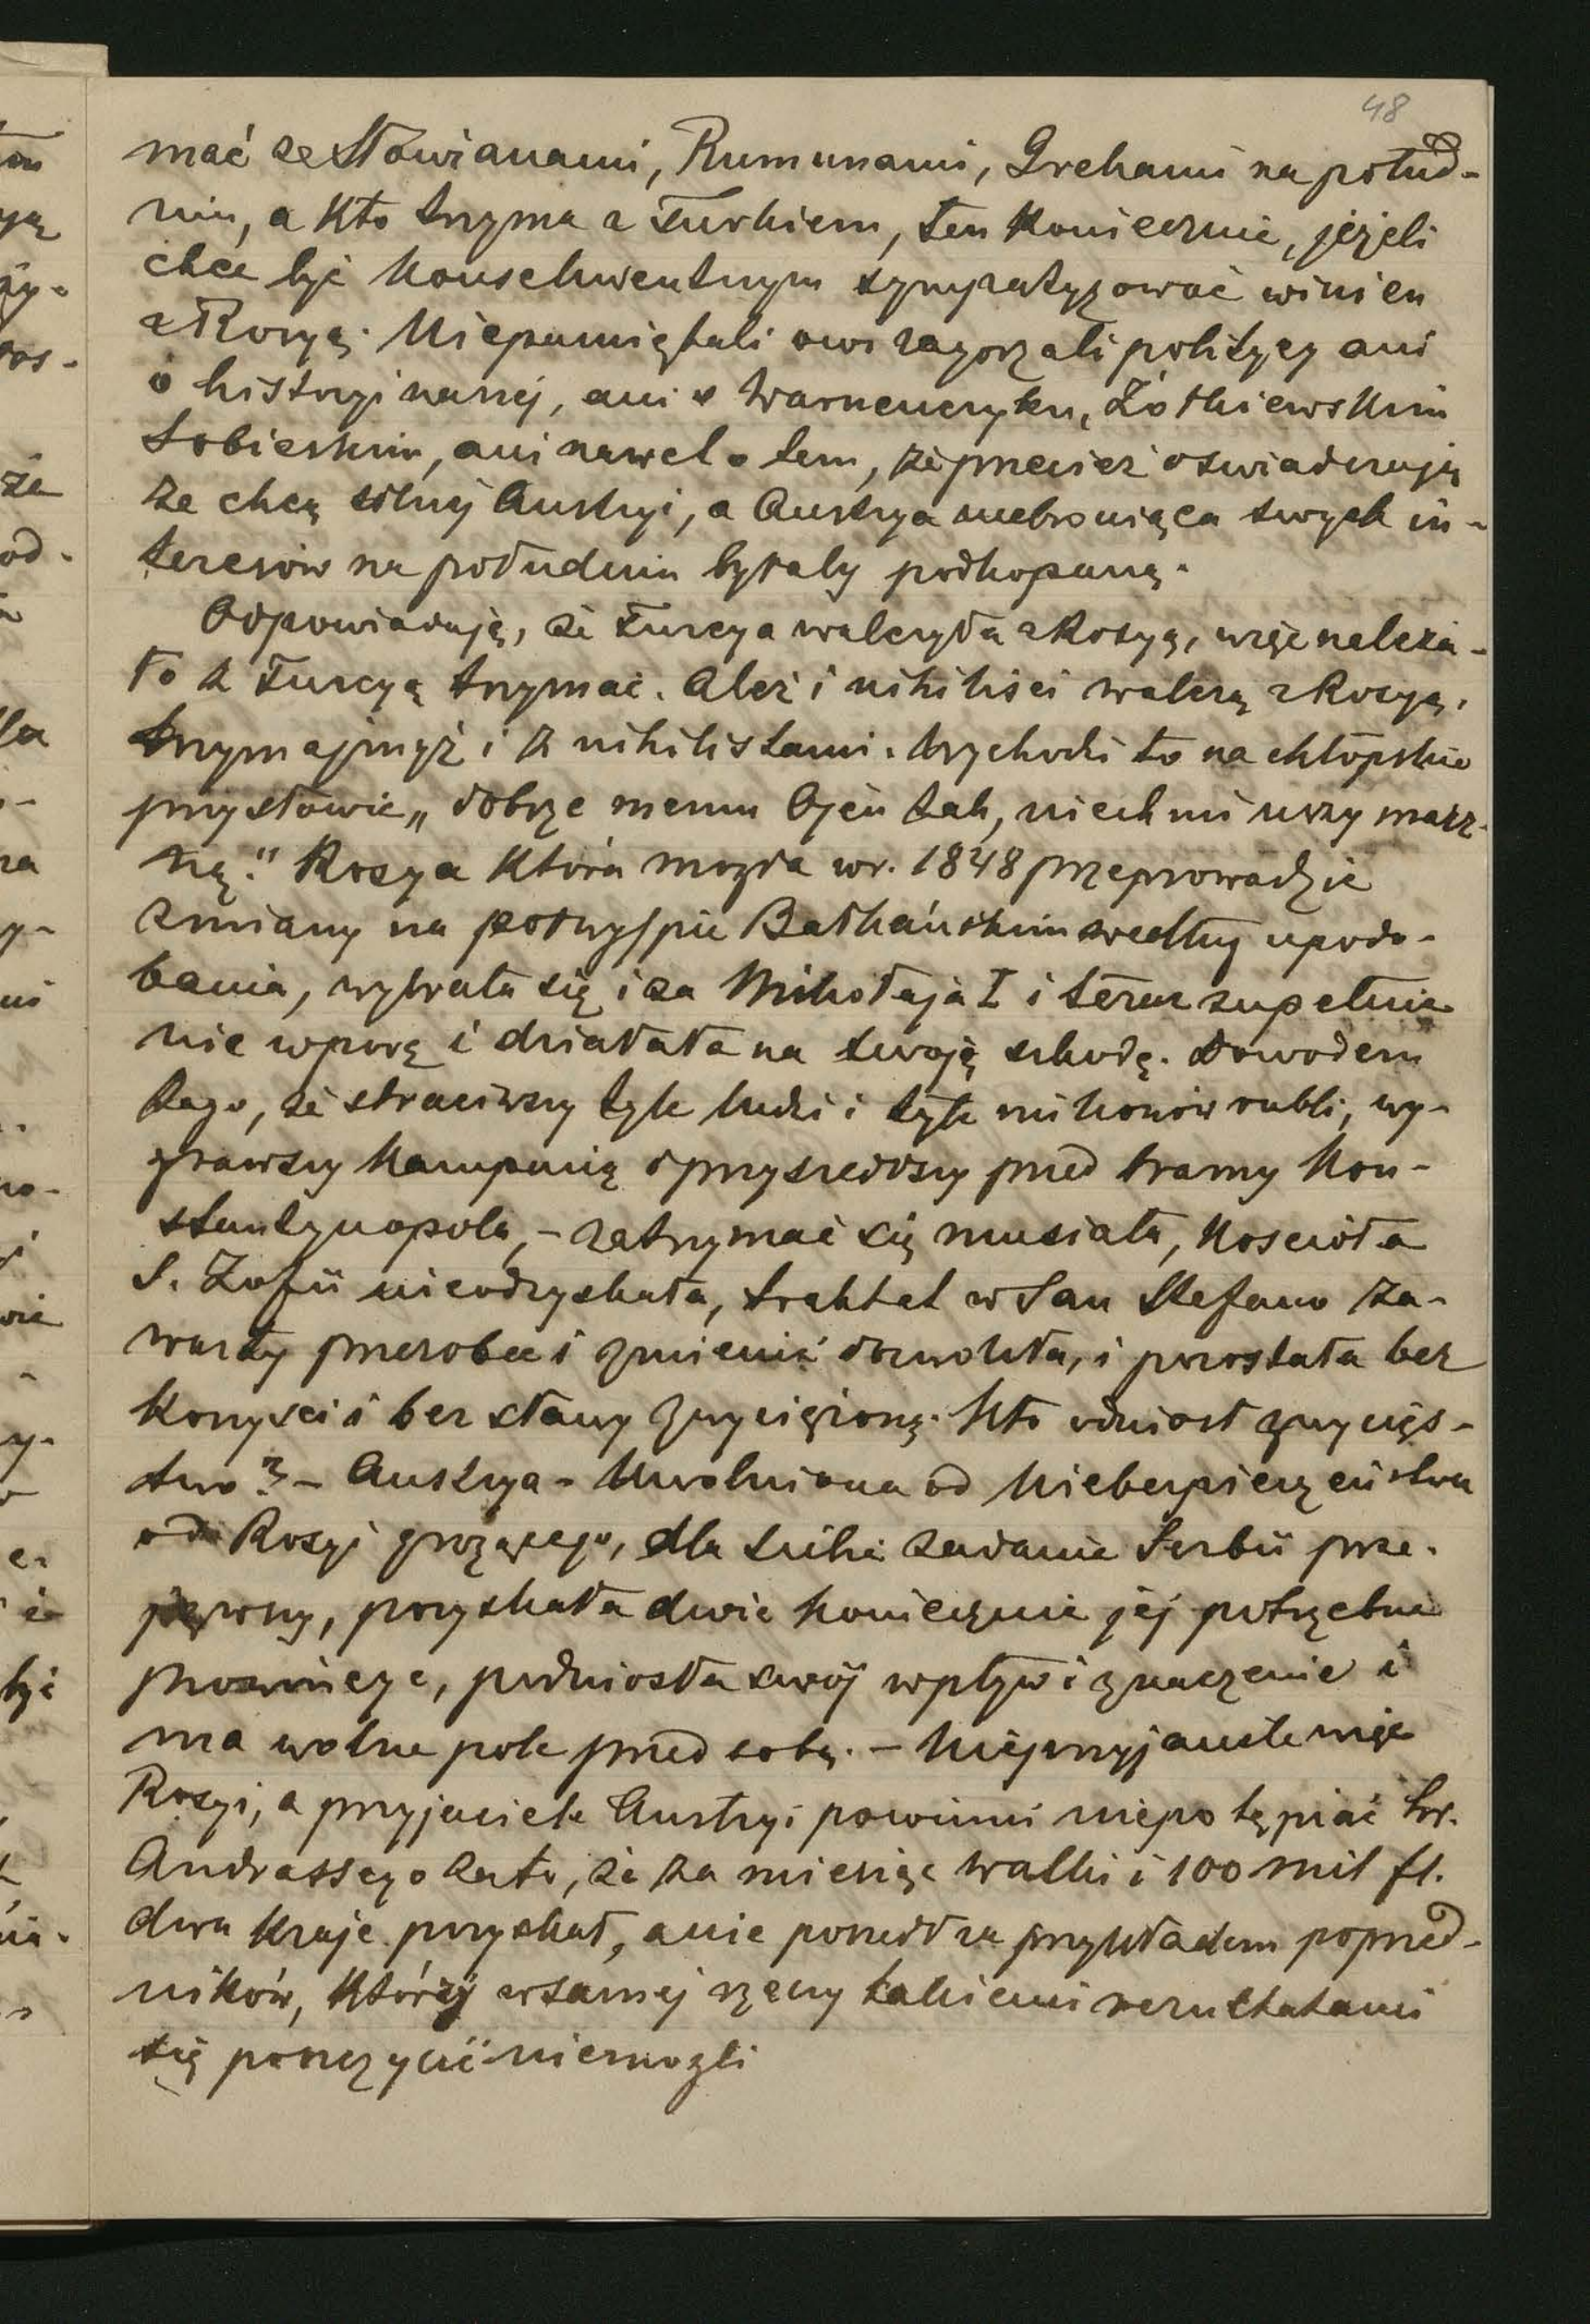 48
mać ze Słowianami, Rumunami, Grekami na połud-
niu, a kto trzyma z Turkiem, ten koniecznie, jeżeli
chce być konsekwentnym sympatyzować winien
z Rosyą. Niepamiętali owi zagorzali politycy ani
o historyi naszej, ani o Warneńczyku, Żółkiewskim
Sobieskim, ani nawet o tem, że przecież oświadczają
że chcą silnej Austryi, a Austrya niebroniąca swych in-
teresów na południu byłaby podkopaną.
Odpowiadają, że Turcya walczyła z Rosyą, więc należa-
ło z Turcyą trzymać. Ależ i nihiliści walczą z Rosyą,
trzymajmyż i z nihilistami. Wychodzi to na chłopskie
przysłowie „dobrze memu Ojcu tak, niech mi uszy marz-
ną." Rosya która mogła w r. 1848 przeprowadzić
zmiany na półwyspie Bałkańskim według upodo-
bania, wybrała się i za Mikołaja I i teraz zupełnie
nie w porę i działała na swoją szkodę. Dowodem
tego, że straciwszy tyle ludzi i tyle milionów rubli, wy-
grawszy kampanią i przyszedłszy pred bramy Kon-
stantynopola, – zatrzymać się musiała, Kościoła
S. Zofii nieodzyskała, traktat w San Stefano za-
warty przerobić i zmienić dozwoliła, i pozostała bez
korzyści i bez sławy zwycięzioną. Kto odniósł zwycięs-
two? – Austrya – Uwolniona od Niebezpieczeństwa
od Rosyi grożącego, dla siebie zadanie Serbii prze-
jąwszy, pozyskała dwie koniecznie jej potrzebne
prowincye, podniosła swój wpływ i znaczenie i
ma wolne pole przed sobą. – Nieprzyjaciele więc
Rosyi, a przyjaciele Austryi powinni niepotępiać hr.
Andrassego za to, że za miesiąc walki i 100 mil fl.
dwa kraje pozyskał, a nie poszedł za przykładem poprzed-
ników, którzy w samej rzeczy takiemi rezultatami
się poszczycić niemogli